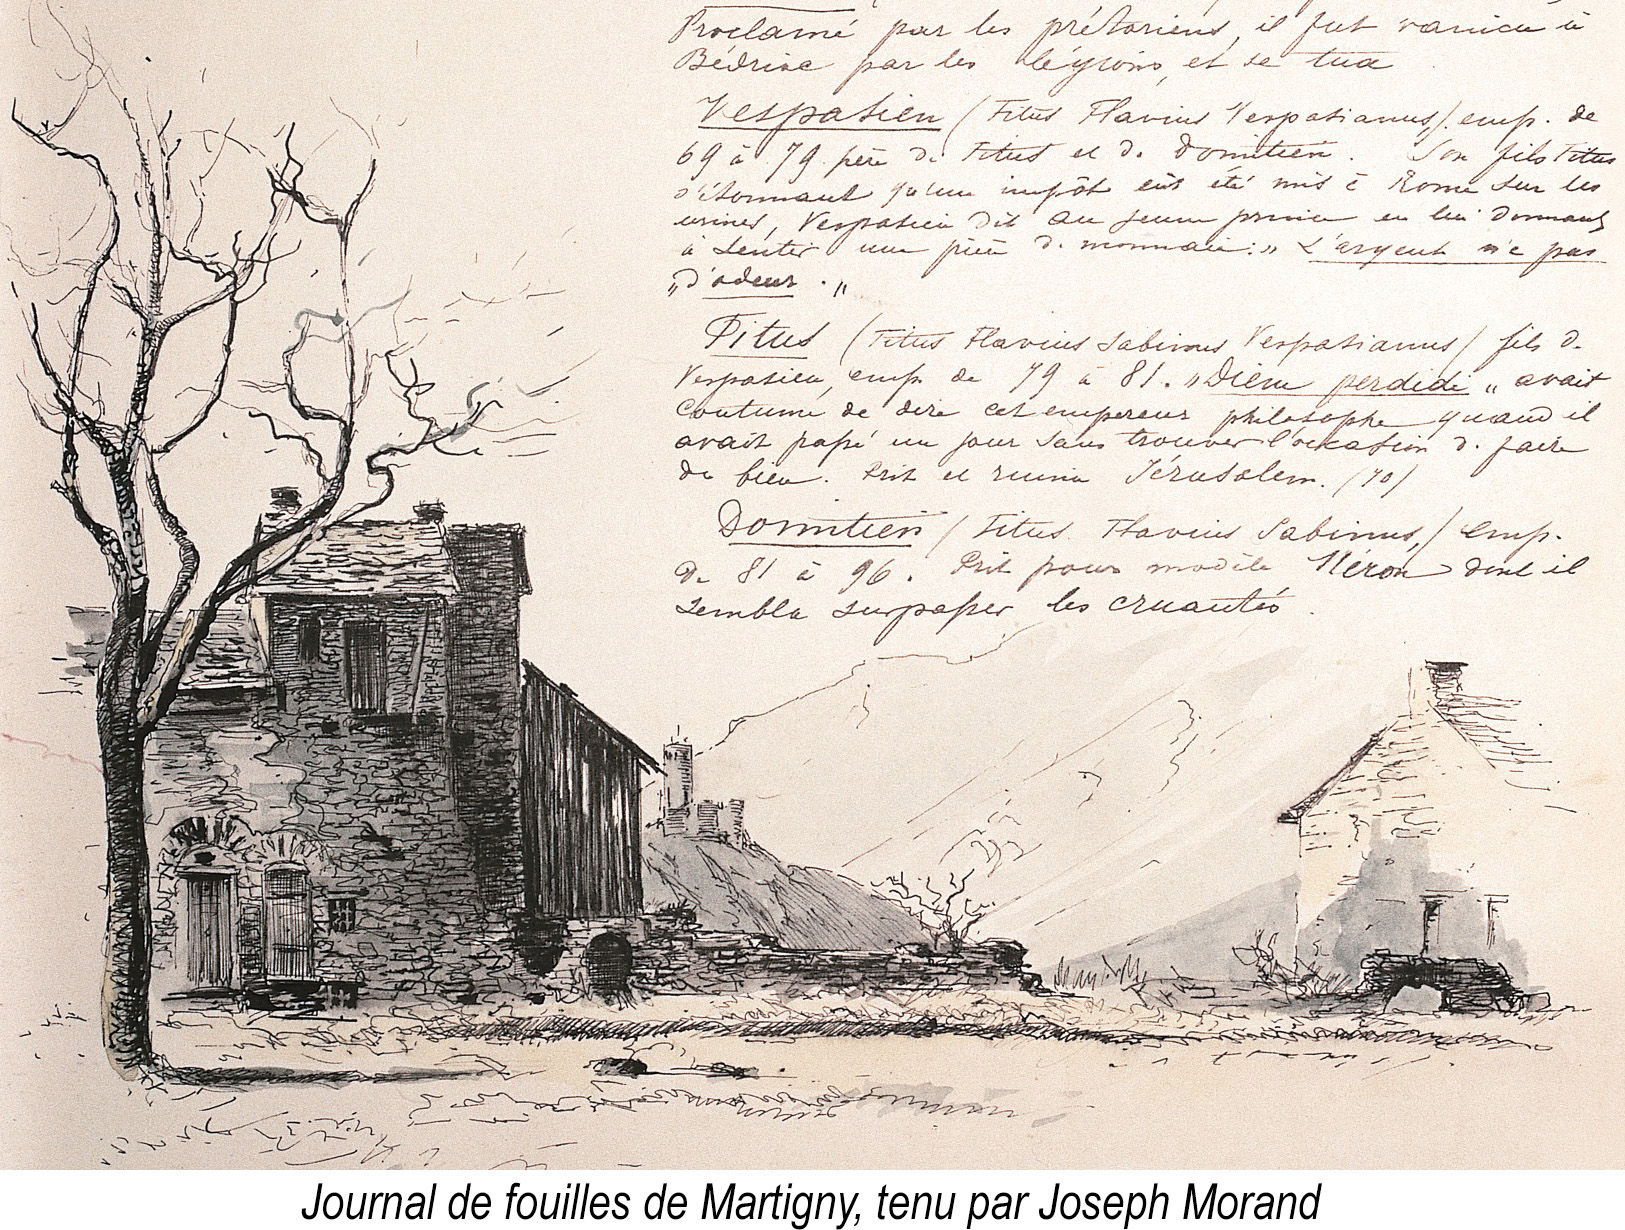 Proclamé par les prétoriens, il fut vaincu à
Bédriac par les légions, et se tua
Vespasien (Titus Flavius Vespasianus,) emp. de
69 à 79 père de Titus et de Domitien. Son fils Titus
s'étonnant qu'un impôt eût été mis à Rome sur les
urines, Vespasien dit au jeune prince en lui donnant
à sentir une pièce de monnaie: " L'argent n'a pas
"d'odeur."
Titus (Titus Flavius Sabinus Vespasianus) fils de
Vespasien, emp. de 79 à 81. "Diem perdidi" avait
coutume de dire cet empereur philosophe quand il
avait passé un jour sans trouver l'occasion de faire
du bien. Prit et ruina Jérusalem. (70)
Domitien (Titus Flavius Sabinus,) emp.
de 81 à 96. Prit pour modèle Néron dont il
sembla surpasser les cruautés.
Journal de fouilles de Martigny, tenu par Joseph Morand